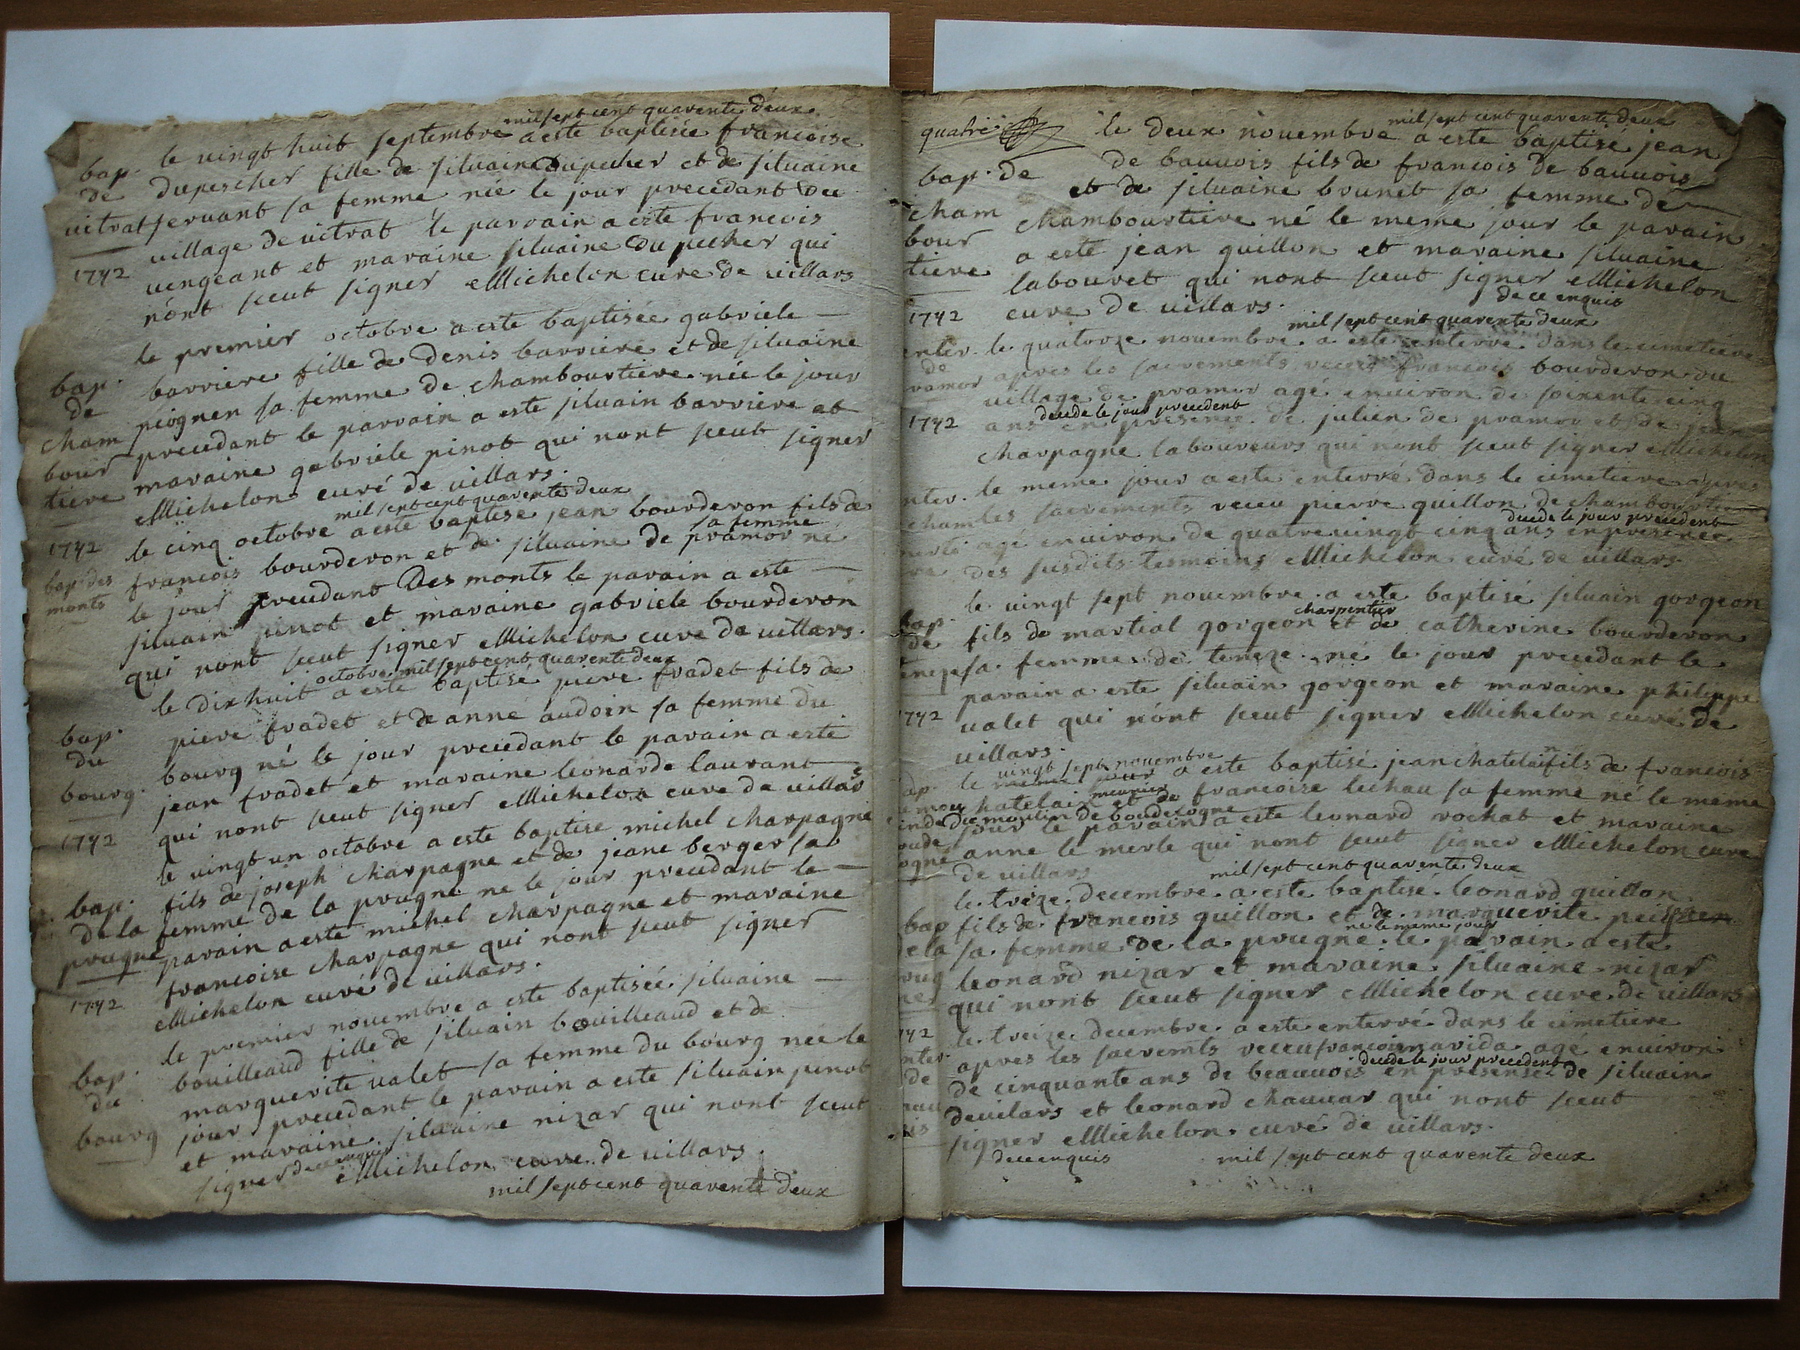 mil sept cent quarente deux
le vingt huit septembre a este baptisée francoise
bap. de dupescher fille de siluain dupecher et de siluaine
vitrat servant sa femme née le jour precedant du
village de vitrat le parrain a este francois
1742 vengeant et maraine siluaine du pecher qui
n'ont sceut signer Michelon curé de villars
le premier octobre a este baptisée gabriele
bap. barriere fille de denis barriere et de siluaine
de piognen sa femme de chambourtiere née le jour
cham precedant le parrain a este siluain barriere et
bour maraine gabriele pinot qui nont sceut signer
tiere Michelon curé de villars.
mil sept cent quarente deux
1742 le cinq octobre a este baptisé jean bourderon fils de
bap. des francois bourderon et de siluaine de pramor né
sa femme
monts le jour precedant Des monts le parain a este
siluain pinot et maraine gabriele bourderon
qui nont sceut signer Michelon curé de villars.
octobre mil sept cent quarente deux
le dix huit a este baptisé piere fradet fils de
bap. piere fradet et de anne audoin sa femme du
du bourg né le jour precedant le parain a esté
bourg. jean fradet et maraine leonarde laurant
1742 qui nont sceut signer Michelon curé de villars
le vingt un octobre a este baptisé michel charpagne
bap. fils de joseph charpagne et de jeane berger sa
de la femme de la prugne né le jour precedant le
prugne parain a esté michel charpagne et maraine
francoise charpagne qui nont sceut signer
1742 Michelon curé de villars.
le premier novembre a este baptisée siluaine
bap. bouilleaud fille de siluain bouilleaud et de
du marguerite valet sa femme du bourg née le
bourg jour precedant le parain a este siluain pinot
et maraine siluaine nizar qui nont sceut
signer de ce enquis Michelon curé de villars.
mil sept cent quarente deux
quatre
mil sept cent quarente deux
le deux novembre a este baptisé jean
bap. de de bauvois fils de francois de bauvois
et de siluaine bounet sa femme de
cham chambourtiere né le meme jour le parain
bour a este jean guillon et maraine siluaine
tiere labouret qui nont sceut signer Michelon
1742 curé de villars.
de ce enquis
mil sept cent quarente deux
enter. le quatorze novembre a este enterré dans le cimetiere
de apres les sacrements receu francois bourderon du
pramor village de pramor agé environ de soixente cinq
decede le jour precedent
1742 ans en presence de julien de pramor et de jean
charpagne laboureurs qui nont sceut signer Michelon
nter. le meme jour a este enterré dans le cimetiere apres
cham les sacrements receu pierre guillon de chambourtie
decede le jour precedent
agé environ de quatre vingt cinq ans en presence
re des susdits tesmoins Michelon curé de villars
le vingt sept novembre a este baptisé siluain gorgeon
charpentier
bap. fils de martial gorgeon et de catherine bourderon
de sa femme de teneze né le jour precedant le
parain a este siluain gorgeon et maraine philippe
1742 valet qui n'ont sceut signer Michelon curé de
villars.
vingt sept novembre
le meme jour a este baptisé jean chatelain fils de francois
meunier
chatelain et de francoise lechau sa femme né le meme
du moulin de boudecogne
jour le parain a este leonard rochat et maraine
anne le merle qui nont sceut signer Michelon curé
de villars
mil sept cent quarente deux
le treize decembre a este baptisé leonard guillon
bap fils de francois guillon et de marguerite
né le meme jour
de la sa femme de la prugne le parain a este
leonard nizar et maraine siluaine nizar
qui nont sceut signer Michelon curé de villars
le treize decembre a este enterré dans le cimetiere
apres les sacremts receu francois navida agé environ
decede le jour precedent
de cinquante ans de beauvois en presence de siluain
devilars et leonard chauvar qui nont sceut
signer Michelon curé de villars.
de ce enquis mil sept cent quarente deux